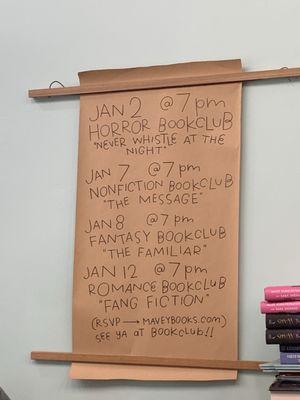 JAN 2 @ 7 pm
HORROR BOOKCLUB
"NEVER WHISTLE AT THE
NIGHT"
JAN 7 @ 7 pm
NONFICTION BOOKCLUB
"THE MESSAGE"
JAN 8 @ 7 pm
FANTASY BOOKCLUB
"THE FAMILIAR"
JAN 12 @ 7 pm
ROMANCE BOOKCLUB
"FANG FICTION"
(RSVP → MAVEYBOOKS.com)
SEE YA AT BOOKCLUB!!